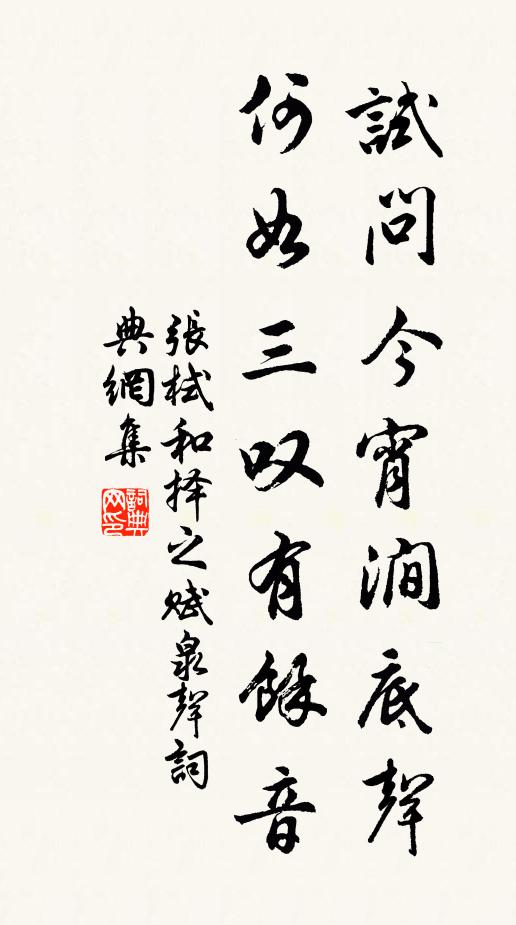 試問今宵澗底聲
何如三叹有餘音
張栻和择之赋泉聲詞
典網集
詞典网印